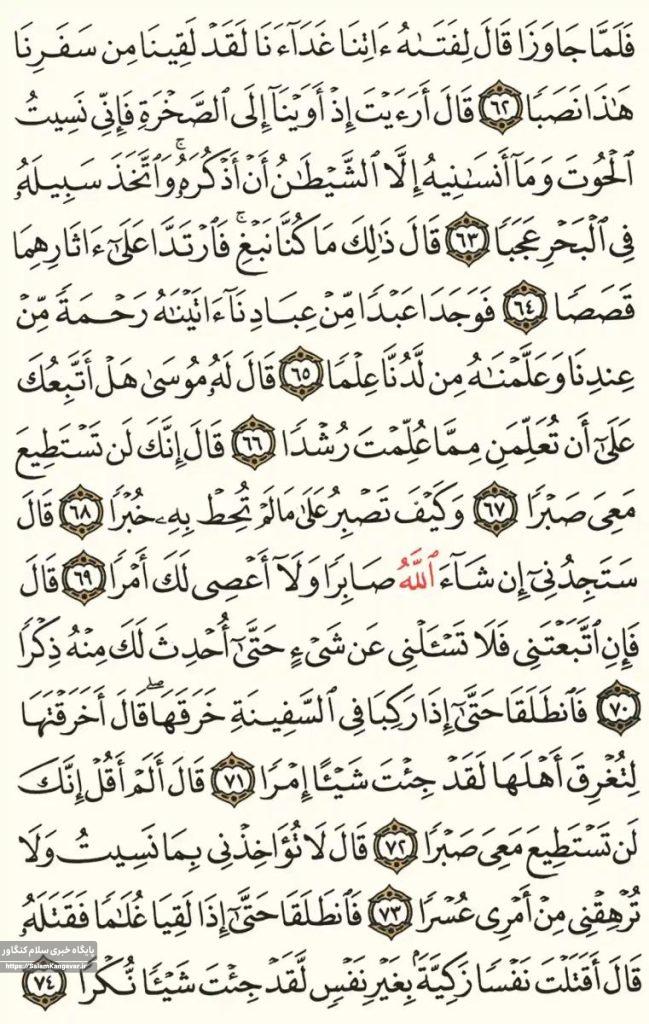 فَلَمَّا جَاوَزَا قَالَ لِفَتَىٰهُ ءَاتِنَا غَدَآءَنَا لَقَدْ لَقِينَا مِن سَفَرِنَا
هَٰذَا نَصَبًا ٦٢ قَالَ أَرَءَيْتَ إِذْ أَوَيْنَآ إِلَى ٱلصَّخْرَةِ فَإِنِّى نَسِيتُ
ٱلْحُوتَ وَمَآ أَنسَىٰنِيهُ إِلَّا ٱلشَّيْطَٰنُ أَنْ أَذْكُرَهُۥ ۚ وَٱتَّخَذَ سَبِيلَهُۥ
فِى ٱلْبَحْرِ عَجَبًا ٦٣ قَالَ ذَٰلِكَ مَا كُنَّا نَبْغِ ۚ فَٱرْتَدَّا عَلَىٰٓ ءَاثَارِهِمَا
قَصَصًا ٦٤ فَوَجَدَا عَبْدًا مِّنْ عِبَادِنَآ ءَاتَيْنَٰهُ رَحْمَةً مِّنْ
عِندِنَا وَعَلَّمْنَٰهُ مِن لَّدُنَّا عِلْمًا ٦٥ قَالَ لَهُۥ مُوسَىٰ هَلْ أَتَّبِعُكَ
عَلَىٰٓ أَن تُعَلِّمَنِ مِمَّا عُلِّمْتَ رُشْدًا ٦٦ قَالَ إِنَّكَ لَن تَسْتَطِيعَ
مَعِىَ صَبْرًا ٦٧ وَكَيْفَ تَصْبِرُ عَلَىٰ مَا لَمْ تُحِطْ بِهِۦ خُبْرًا ٦٨ قَالَ
سَتَجِدُنِىٓ إِن شَآءَ ٱللَّهُ صَابِرًا وَلَآ أَعْصِى لَكَ أَمْرًا ٦٩ قَالَ
فَإِنِ ٱتَّبَعْتَنِى فَلَا تَسْـَٔلْنِى عَن شَىْءٍ حَتَّىٰٓ أُحْدِثَ لَكَ مِنْهُ ذِكْرًا
٧٠ فَٱنطَلَقَا حَتَّىٰٓ إِذَا رَكِبَا فِى ٱلسَّفِينَةِ خَرَقَهَا ۖ قَالَ أَخَرَقْتَهَا
لِتُغْرِقَ أَهْلَهَا لَقَدْ جِئْتَ شَيْـًٔا إِمْرًا ٧١ قَالَ أَلَمْ أَقُلْ إِنَّكَ
لَن تَسْتَطِيعَ مَعِىَ صَبْرًا ٧٢ قَالَ لَا تُؤَاخِذْنِى بِمَا نَسِيتُ وَلَا
تُرْهِقْنِى مِنْ أَمْرِى عُسْرًا ٧٣ فَٱنطَلَقَا حَتَّىٰٓ إِذَا لَقِيَا غُلَٰمًا فَقَتَلَهُۥ
قَالَ أَقَتَلْتَ نَفْسًا زَكِيَّةًۢ بِغَيْرِ نَفْسٍ لَّقَدْ جِئْتَ شَيْـًٔا نُّكْرًا ٧٤
پایگاه خبری سلام کنگاور
https://SalamKangavar.ir